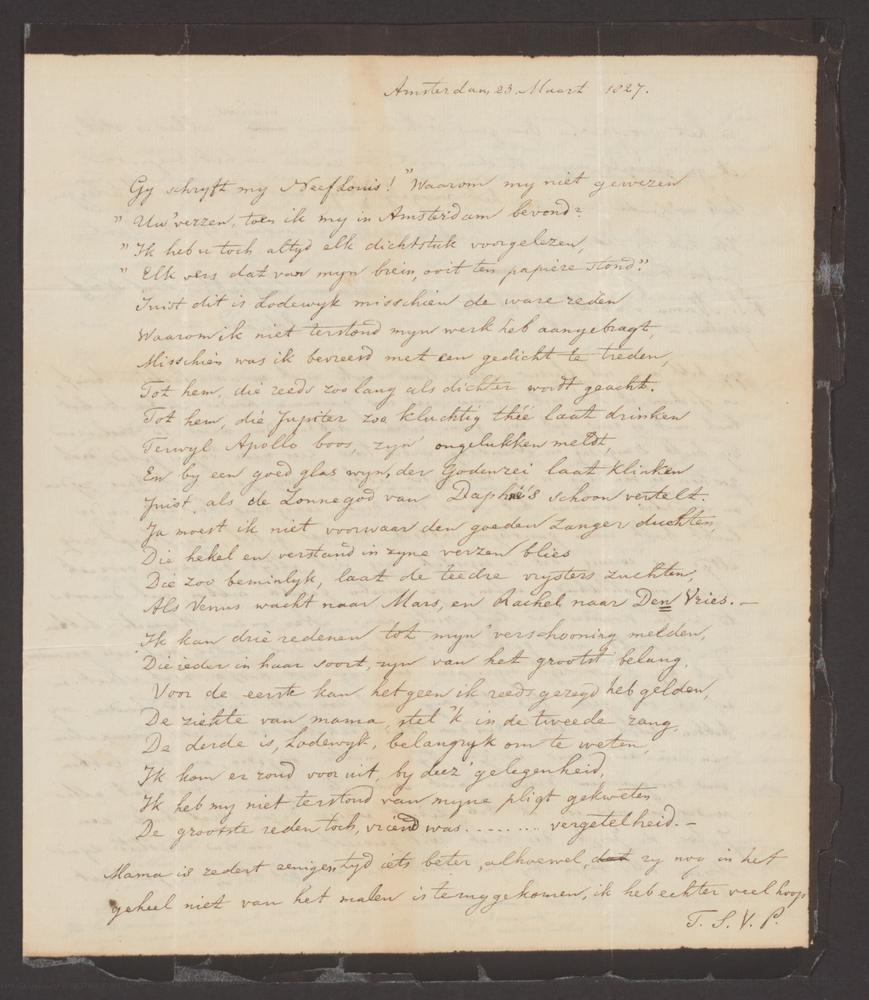 Amsterdam, 23. Maart 1827.
Gy schryft my Neef Louis! "Waarom my niet gewezen
" Uw' verzen, toen ik my in Amsterdam bevond?
" Ik heb u toch altyd elk dichtstuk voorgelezen,
" Elk vers dat van myn brein, ooit ten papiere stond."
Juist dit is Lodewyk misschien de ware reden
Waarom ik niet terstond myn werk heb aangebragt,
Misschien was ik bevreesd met een gedicht te treden,
Tot hem, die reeds zoo lang als dichter wordt geacht.
Tot hem, die Jupiter zoo kluchtig thée laat drinken
Terwyl Apollo boos, zyn' ongelukken meldt,
En by een goed glas wyn, der Godenrei laat klinken
Juist als de Zonnegod van Daphné's schoon vertelt.
Ja moest ik niet voorwaar den goeden Zanger duchten,
Die hekel en verstand in zyne verzen blies
Die zoo beminlyk, laat de teedre vrysters zuchten,
Als Venus wacht naar Mars, en Rachel naar Den Vries. —
Ik kan drie redenen tot myn' verschooning melden,
Die ieder in haar soort, zyn van het grootst belang.
Voor de eerste kan hetgeen ik reeds gezegd heb gelden,
De ziekte van mama, stel 'k in de tweede rang,
De derde is, Lodewyk, belangryk om te weten,
Ik kom er rond voor uit, by deez' gelegenheid,
Ik heb my niet terstond van myne pligt gekweten
De grootste reden toch, vriend was ......... vergetelheid. —
Mama is zedert eenigen tyd iets beter, alhoewel, dat zy nog in het
geheel niet van het malen is teruggekomen, ik heb echter veel hoop
T. S. V. P.